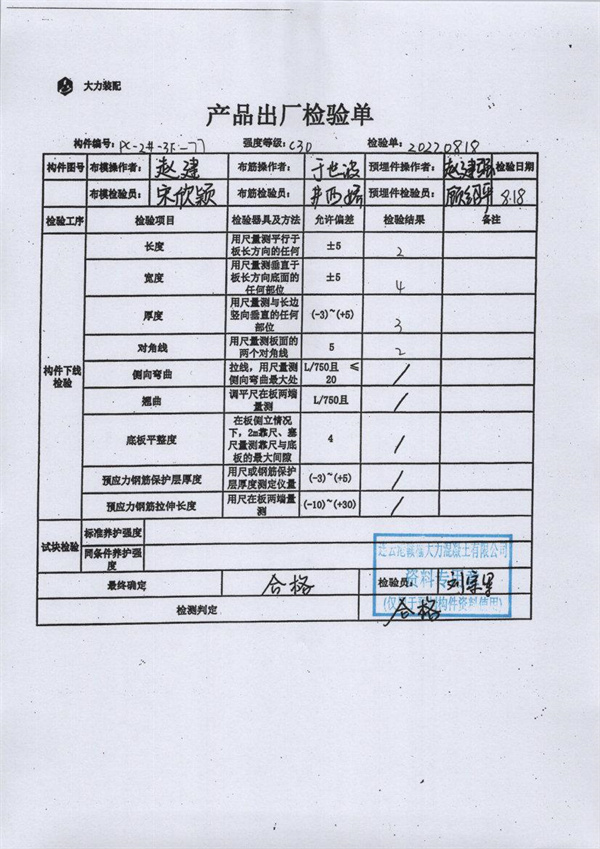 大力装配
产品出厂检验单
构件编号: PC-2#-3F-77 强度等级: C30 检验单: 20220818
构件图号 布模操作者: 赵建 布筋操作者: 于世波 预埋件操作者: 赵建强 检验日期
布模检验员: 宋欣颖 布筋检验员: 预埋件检验员: 8.18
检验工序 检验项目 检验器具及方法 允许偏差 检验结果 备注
构件下线检验
长度 用尺量测平行于板长方向的任何 ±5 2
宽度 用尺量测垂直于板长方向底面的任何部位 ±5 4
厚度 用尺量测与长边竖向垂直的任何部位 (-3)~(+5) 3
对角线 用尺量测板面的两个对角线 5 2
侧向弯曲 拉线，用尺量测侧向弯曲最大处 L/750且 ≤20 /
翘曲 调平尺在板两端量测 L/750且 /
底板平整度 在板侧立情况下，2m靠尺、塞尺量测靠尺与底板的最大间隙 4 /
预应力钢筋保护层厚度 用尺或钢筋保护层厚度测定仪量 (-3)~(+5) /
预应力钢筋拉伸长度 用尺在板两端量测 (-10)~(+30) /
试块检验 标准养护强度
同条件养护强度
最终确定 合格 检验员:
检测判定 合格
大力混凝土有限公司
资料专用
构件资料使用)